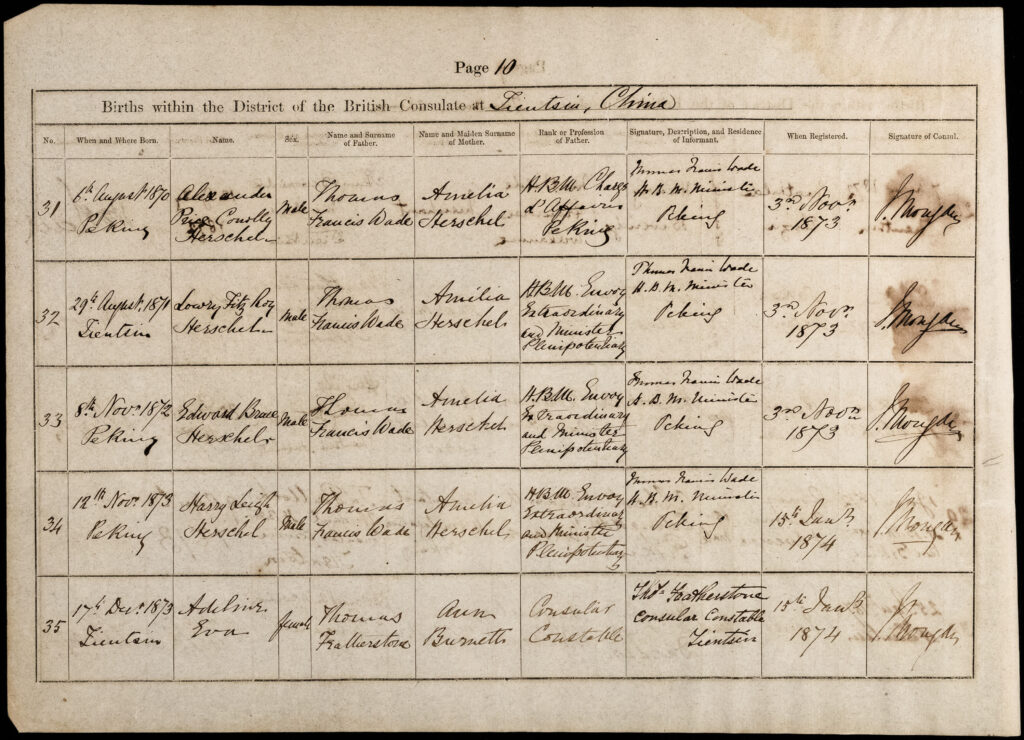 Page 10
Births within the District of the British Consulate at Tientsin, China
No. When and Where Born. Name. Sex. Name and Surname of Father. Name and Maiden Surname of Mother. Rank or Profession of Father. Signature, Description, and Residence of Informant. When Registered. Signature of Consul.
31
6th August 1870
Peking
Alexander
Price Conolly
Herschel
Male
Thomas
Francis Wade
Amelia
Herschel
H.B.M. Chargé
d'Affaires
Peking
Thomas Francis Wade
H. B. M. Minister
Peking
3rd Novr.
1873
J. Mongan
32
29th August 1871
Tientsin
Lowry Fitz Roy
Herschel
Male
Thomas
Francis Wade
Amelia
Herschel
H.B.M. Envoy
Extraordinary
and Minister
Plenipotentiary
Thomas Francis Wade
H. B. M. Minister
Peking
3rd Novr.
1873
J. Mongan
33
8th Novr. 1872
Peking
Edward Bruce
Herschel
Male
Thomas
Francis Wade
Amelia
Herschel
H.B.M. Envoy
Extraordinary
and Minister
Plenipotentiary
Thomas Francis Wade
H. B. M. Minister
Peking
3rd Novr.
1873
J. Mongan
34
12th Novr. 1873
Peking
Harry Leigh
Herschel
Male
Thomas
Francis Wade
Amelia
Herschel
H.B.M. Envoy
Extraordinary
and Minister
Plenipotentiary
Thomas Francis Wade
H. B. M. Minister
Peking
15th Jany.
1874
J. Mongan
35
17th Decr. 1873
Tientsin
Adeline
Eva
female
Thomas
Featherstone
Ann
Burnett
Consular
Constable
Thos. Featherstone
Consular Constable
Tientsin
15th Jany.
1874
J. Mongan